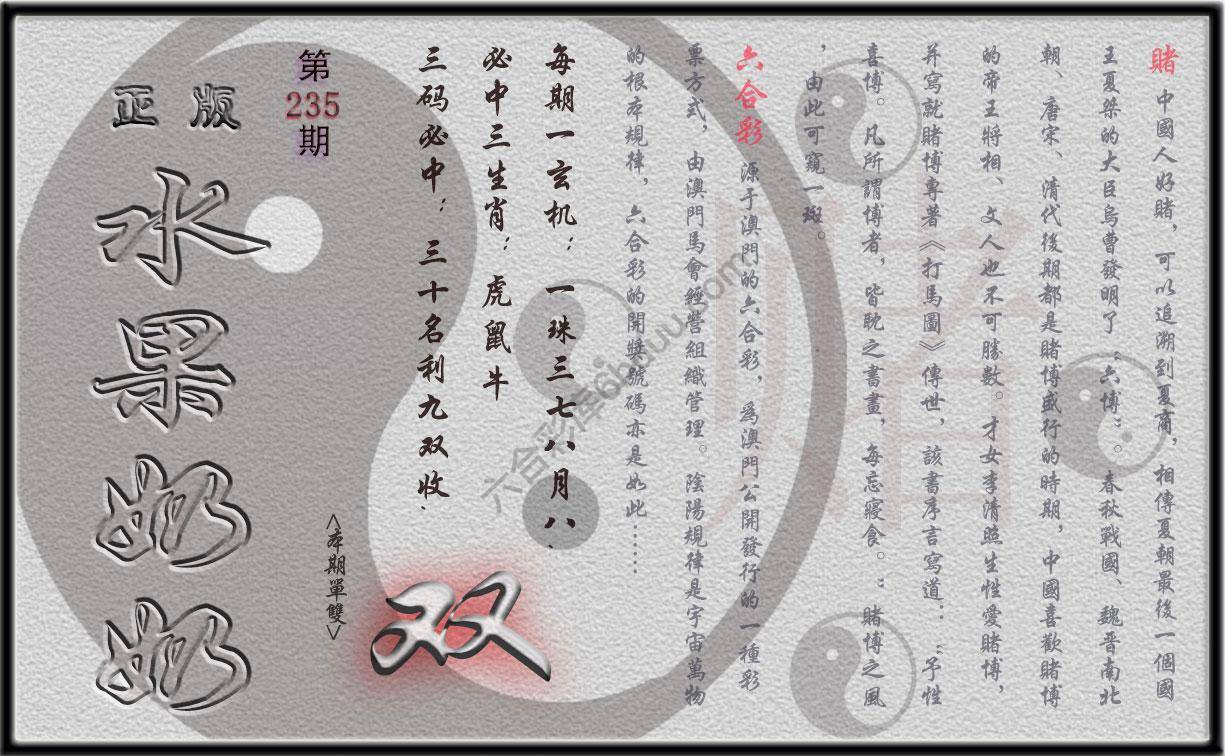 賭 中國人好賭，可以追溯到夏商，相傳夏朝最後一個國
王夏桀的大臣烏曹發明了“六博”。春秋戰國、魏晋南北
朝、唐宋、清代後期都是賭博盛行的時期，中國喜歡賭博
的帝王將相、文人也不可勝數。才女李清照生性愛賭博，
并寫就賭博專著《打馬圖》傳世，該書序言寫道：“予性
喜博。凡所謂博者，皆耽之書畫，每忘寢食。”賭博之風
，由此可窺一斑。
六合彩 源于澳門的六合彩，爲澳門公開發行的一種彩
票方式，由澳門馬會經營組織管理。陰陽規律是宇宙萬物
的根本規律，六合彩的開獎號碼亦是如此……
每期一玄机：一珠三七八月八、
必中三生肖：虎鼠牛
三码必中：三十名利九双收、
<本期單雙>
双
第
235
期
正版
水果奶奶
赌
六合彩库6huuu.com